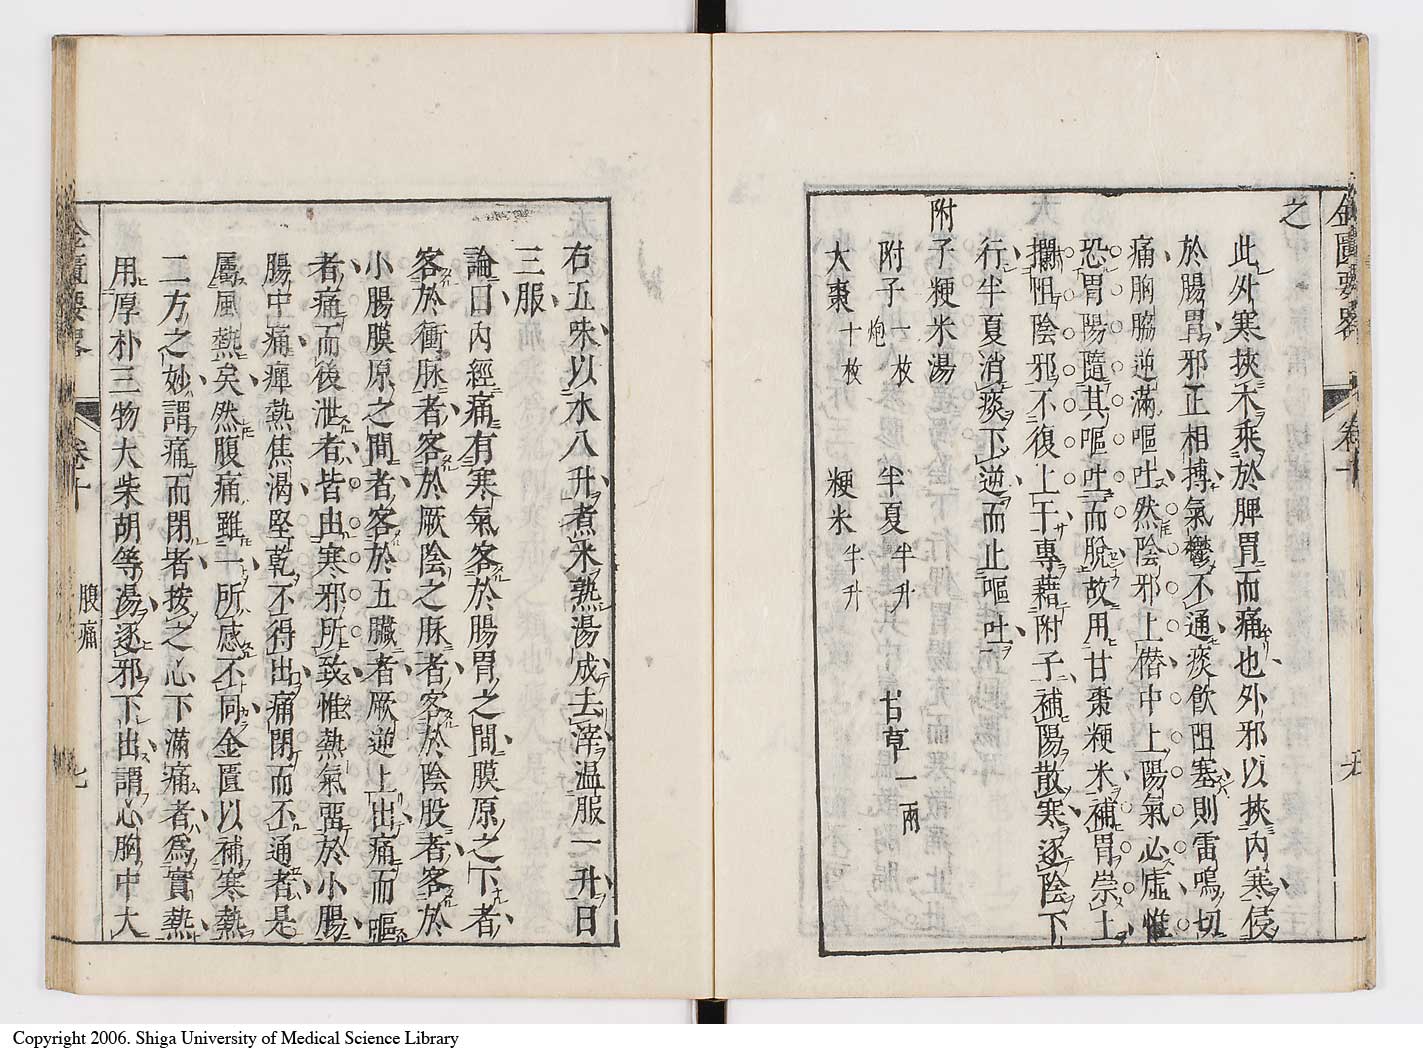 之
此外寒挾木乘於脾胃而痛也外邪以挾內寒侵
於腸胃邪正相搏氣鬱不通痰飲阻塞則雷鳴切
痛胸脇逆滿嘔吐然陰邪上僭中上陽氣必虛惟
恐胃陽隨其嘔吐而脫故用甘棗粳米補胃崇土
攔阻陰邪不復上干專藉附子補陽散寒逐陰下
行半夏消痰下逆而止嘔吐
附子粳米湯
附子一枚炮 半夏半升 甘草一兩
大棗十枚 粳米半升
右五味以水八升煮米熟湯成去滓溫服一升日
三服
論曰內經痛有寒氣客於腸胃之間膜原之下者
客於衝脉者客於厥陰之脉者客於陰股者客於
小腸膜原之間者客於五臟者厥逆上出痛而嘔
者痛而後泄者皆由寒邪所致惟熱氣畱於小腸
腸中痛癉熱焦渴堅乾不得出痛閉而不通者是
屬風熱矣然腹痛雖一所感不同金匱以補寒熱
二方之妙謂痛而閉者按之心下滿痛者為實熱
用厚朴三物大柴胡等湯逐邪下出謂心胸中大
金匱要畧 卷十 腹痛 七